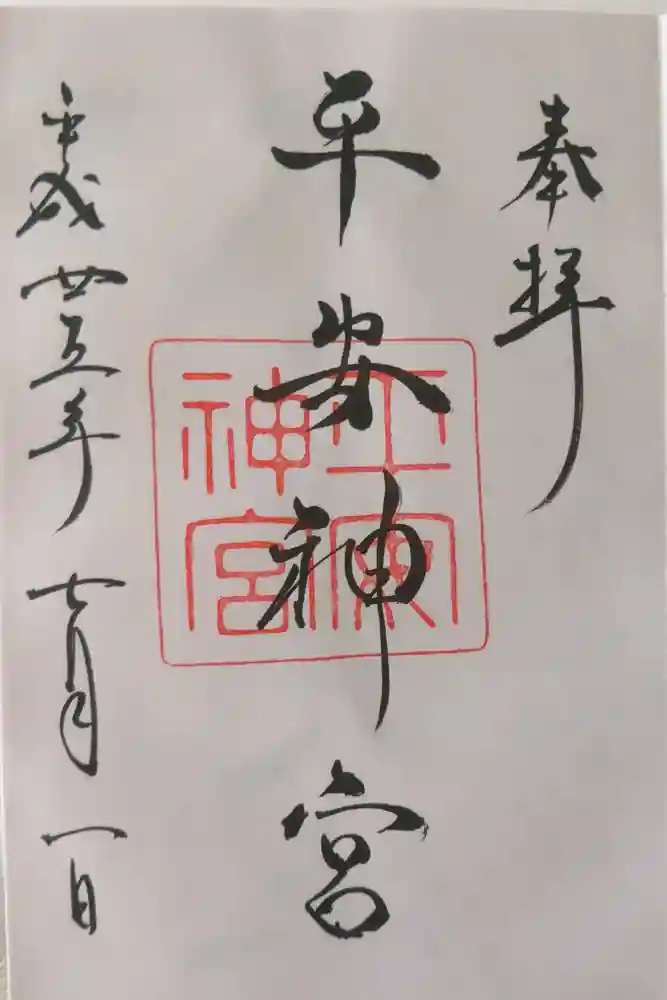 奉拝
平安神宮
平安神宮
平成廿五年七月一日